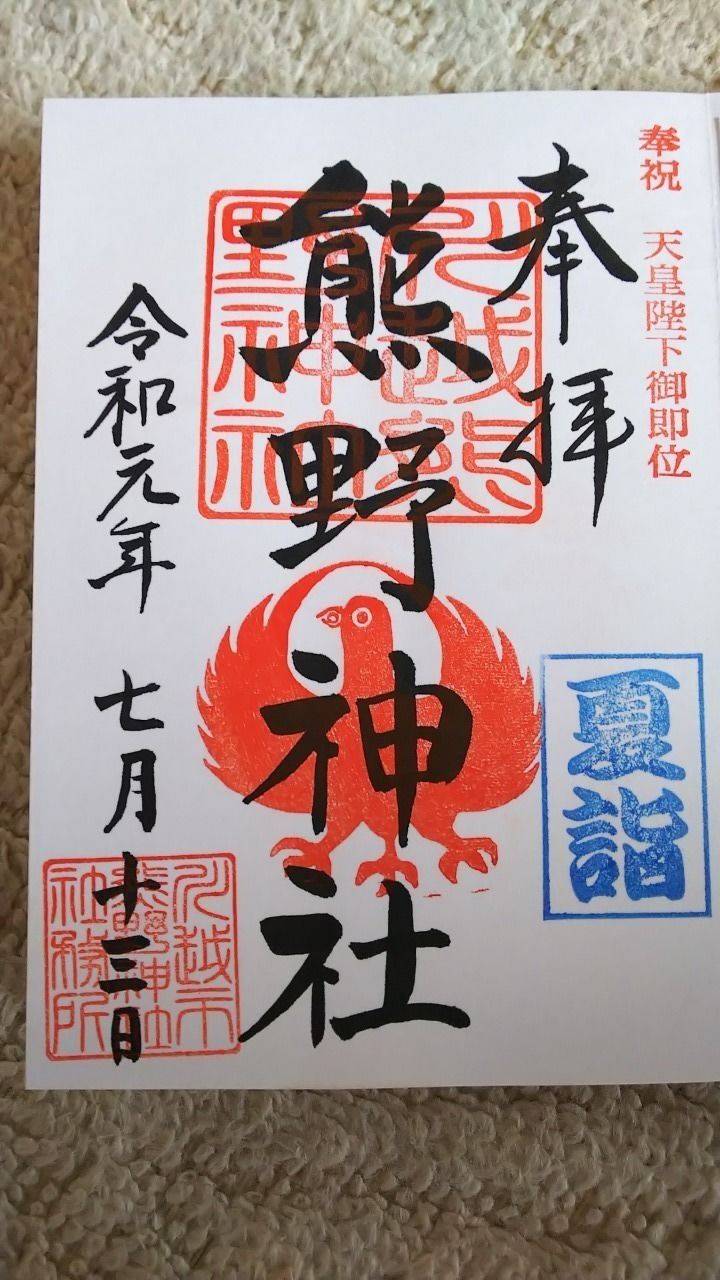 奉祝 天皇陛下御即位
奉拝
夏詣
川越熊野神社
熊野神社
令和元年 七月 十三日
川越市熊野神社社務所